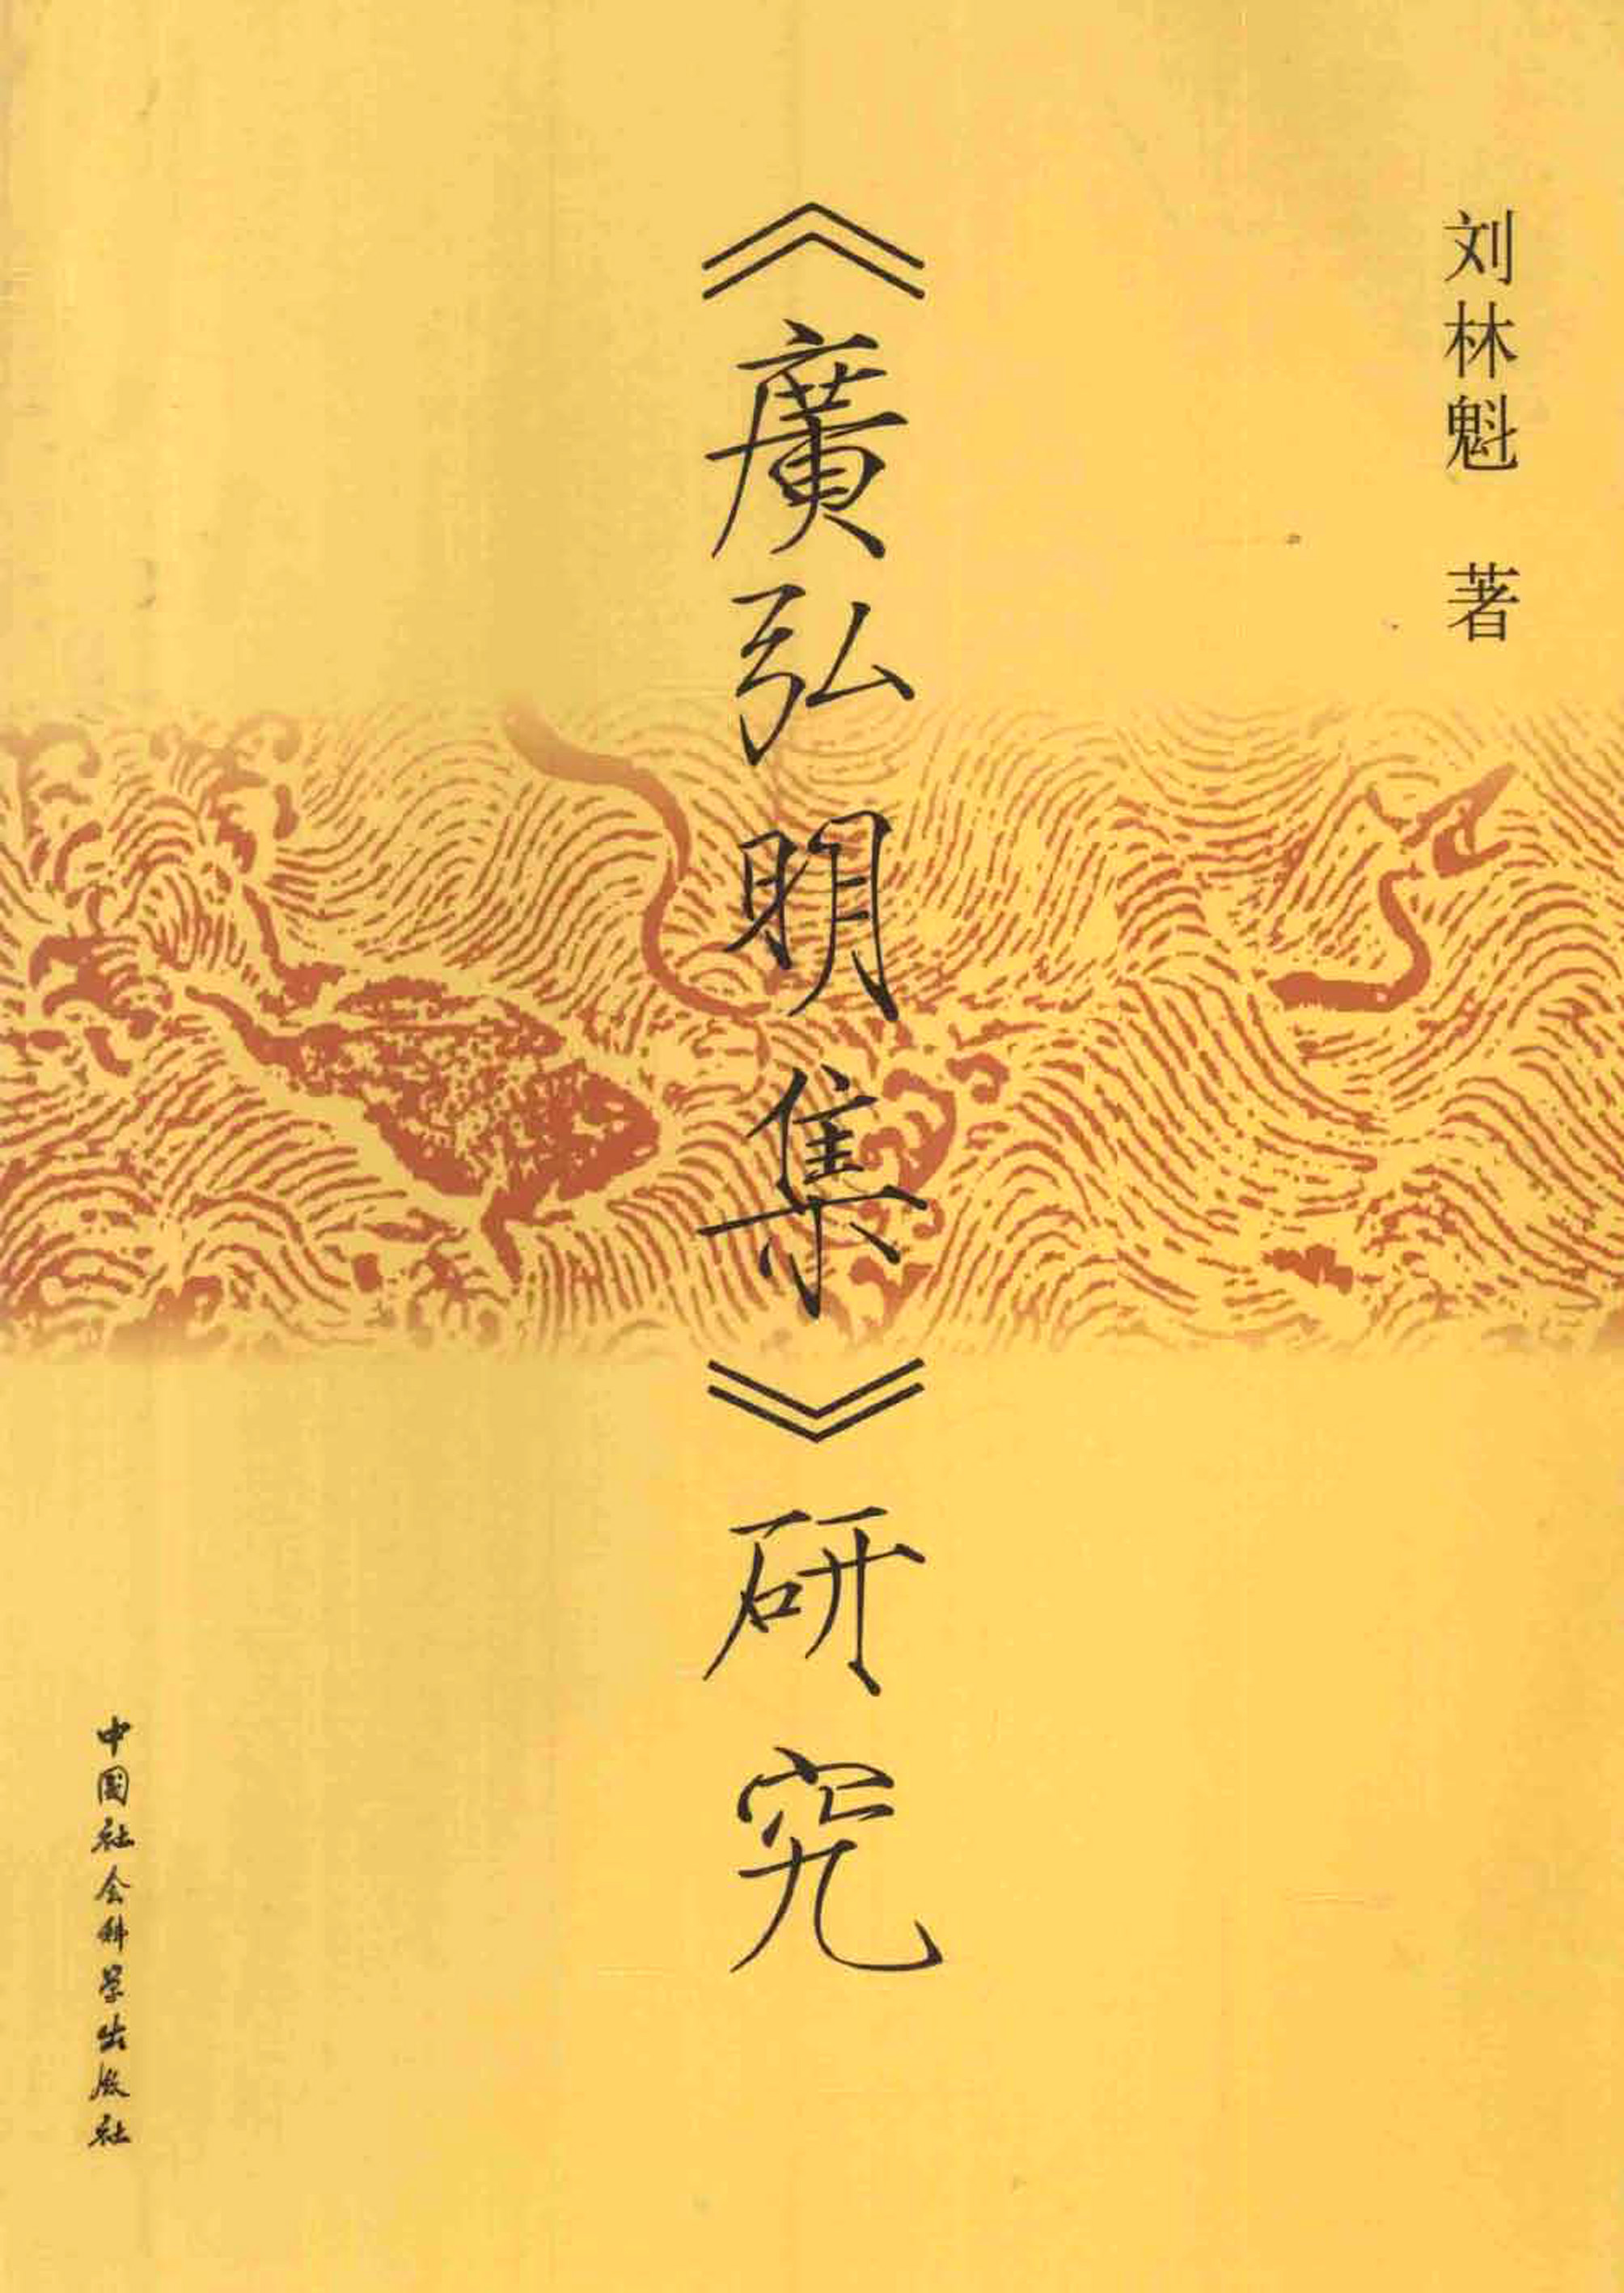 刘林魁 著
《廣弘明集》研究
中國社会科学出版社